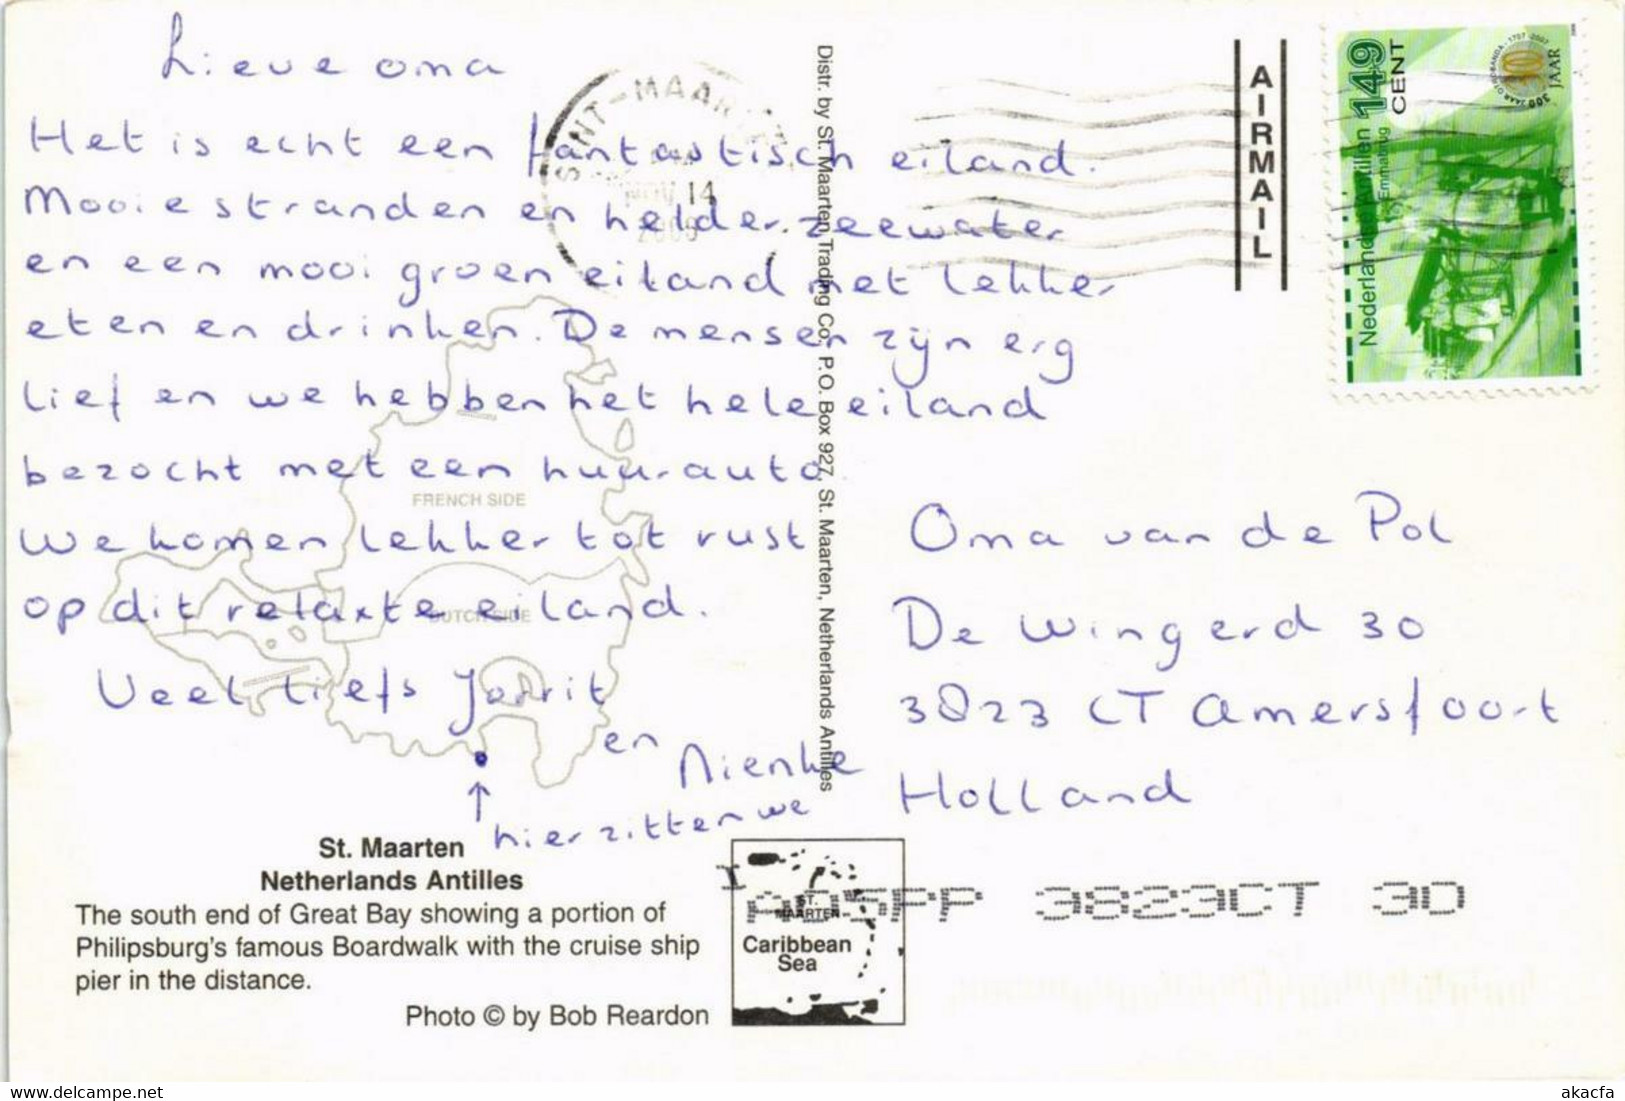 Lieve oma
Het is echt een fantastisch eiland.
Mooie stranden en helder zeewater
en een mooi groen eiland met lekker
eten en drinken. De mensen zijn erg
lief en we hebben het hele eiland
bezocht met een huurauto.
We komen lekker tot rust
op dit relaxte eiland.
Veel liefs Jorrit
en Nienke
↑ hier zitten we
FRENCH SIDE
DUTCH SIDE
St. Maarten
Netherlands Antilles
The south end of Great Bay showing a portion of
Philipsburg's famous Boardwalk with the cruise ship
pier in the distance.
Photo © by Bob Reardon
ST.
MAARTEN
Caribbean
Sea
Distr. by St. Maarten Trading Co., P.O. Box 927, St. Maarten, Netherlands Antilles
SINT-MAARTEN
NOV 14
AIRMAIL
Nederlandse Antillen 149 CENT
Emmabrug
300 JAAR OTROBANDA - 1707-2007
JAAR
Oma van de Pol
De Wingerd 30
3823 CT Amersfoort
Holland
3823CT 30
akacfa